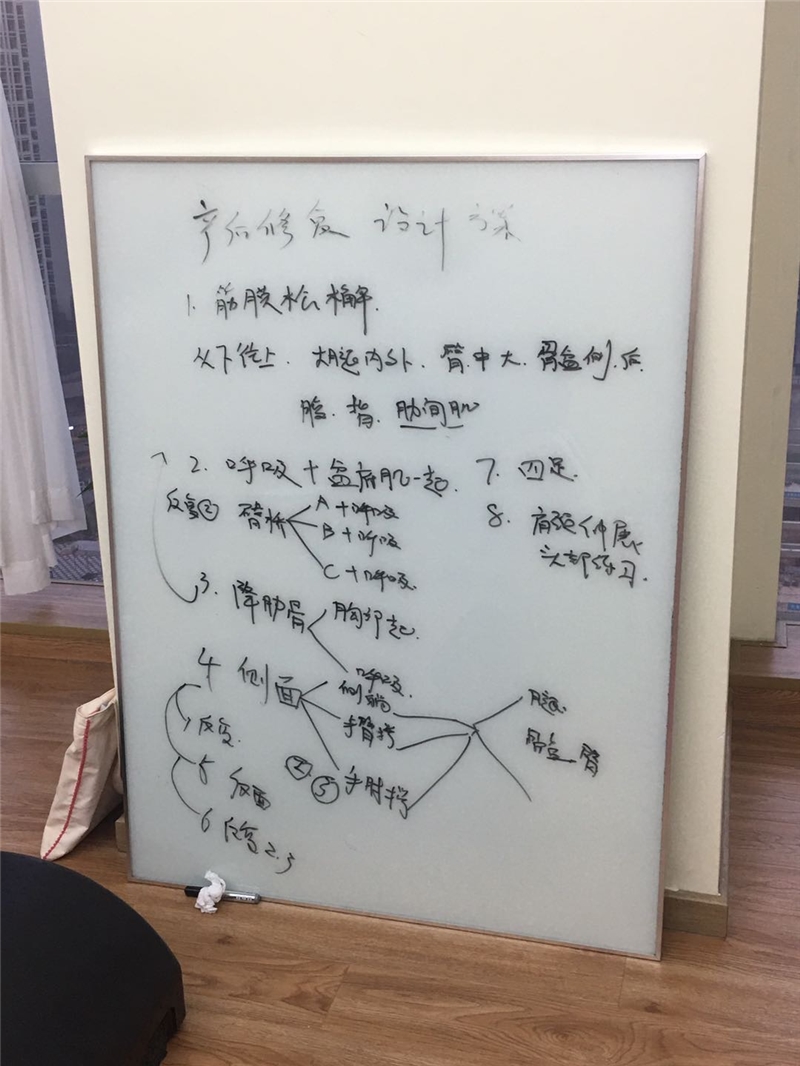 产后修复 设计方案
1. 筋膜松解.
从下往上. 大腿内外. 臀.中大. 骨盆侧.后.
腹. 背. 肋间肌
2. 呼吸+盆底肌一起.
反复② 臀桥
A+呼吸
B+呼吸
C+呼吸.
3. 降肋骨
胸部起.
呼吸.
4 侧面
侧躺
手臂撑
② ③ 手肘撑
腿.
骨盆 臀
反复.
5 反面
6 反复2.3
7. 四足.
8. 肩颈伸展
头部练习.